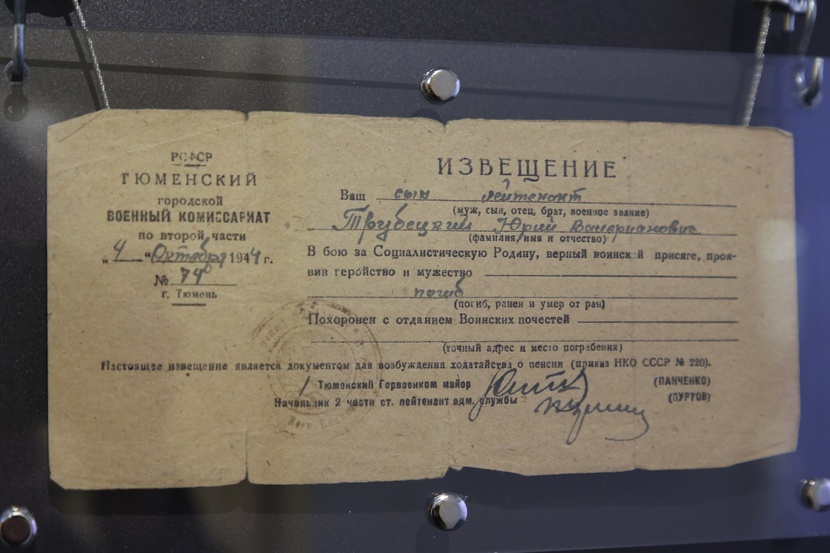 РСФСР
ТЮМЕНСКИЙ
городской
ВОЕННЫЙ КОМИССАРИАТ
по второй части
„4" Октября 1944 г.
№ 74
г. Тюмень
ИЗВЕЩЕНИЕ
Ваш сын лейтенант
(муж, сын, отец, брат, военное звание)
Трубецкий Юрий Валерианович
(фамилия, имя и отчество)
В бою за Социалистическую Родину, верный воинской присяге, проя-
вив геройство и мужество
погиб
(погиб, ранен и умер от ран)
Похоронен с отданием Воинских почестей
(точный адрес и место погребения)
Настоящее извещение является документом для возбуждения ходатайства о пенсии (приказ НКО СССР № 220).
Тюменский Горвоенком майор (ПАНЧЕНКО)
Начальник 2 части ст. лейтенант адм. службы (ПУРТОВ)